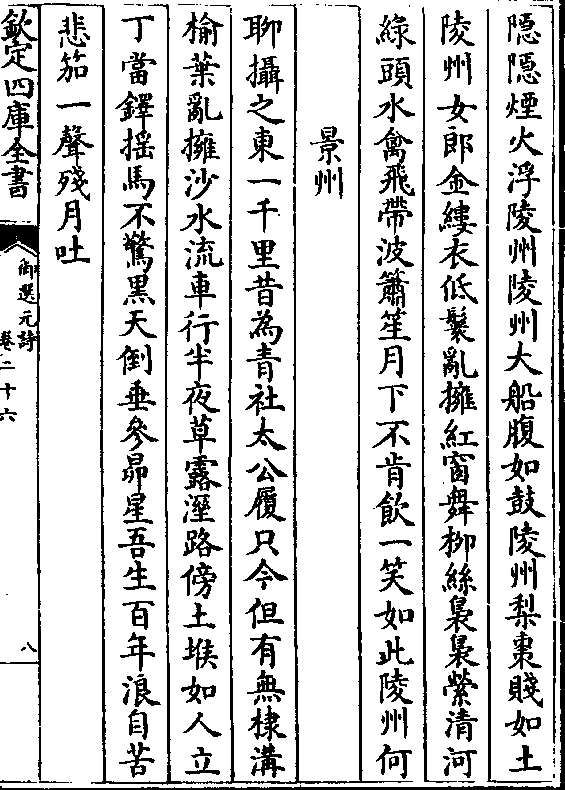 隠隠煙火浮陵州陵州大船腹如鼓陵州梨棗賤如土
陵州女郎金縷衣低鬟亂擁紅窗舞柳絲裊裊縈清河
綠頭水禽飛帶波簫笙月下不肯飲一笑如此陵州何
景州
聊攝之東一千里昔為青社太公履只今但有無棣溝
榆葉亂擁沙水流車行半夜草露溼路傍土堠如人立
丁當鐸搖馬不驚黒天倒垂參昴星吾生百年浪自苦
悲笳一聲殘月吐
欽定四庫全書
御選元詩
卷二十六
八